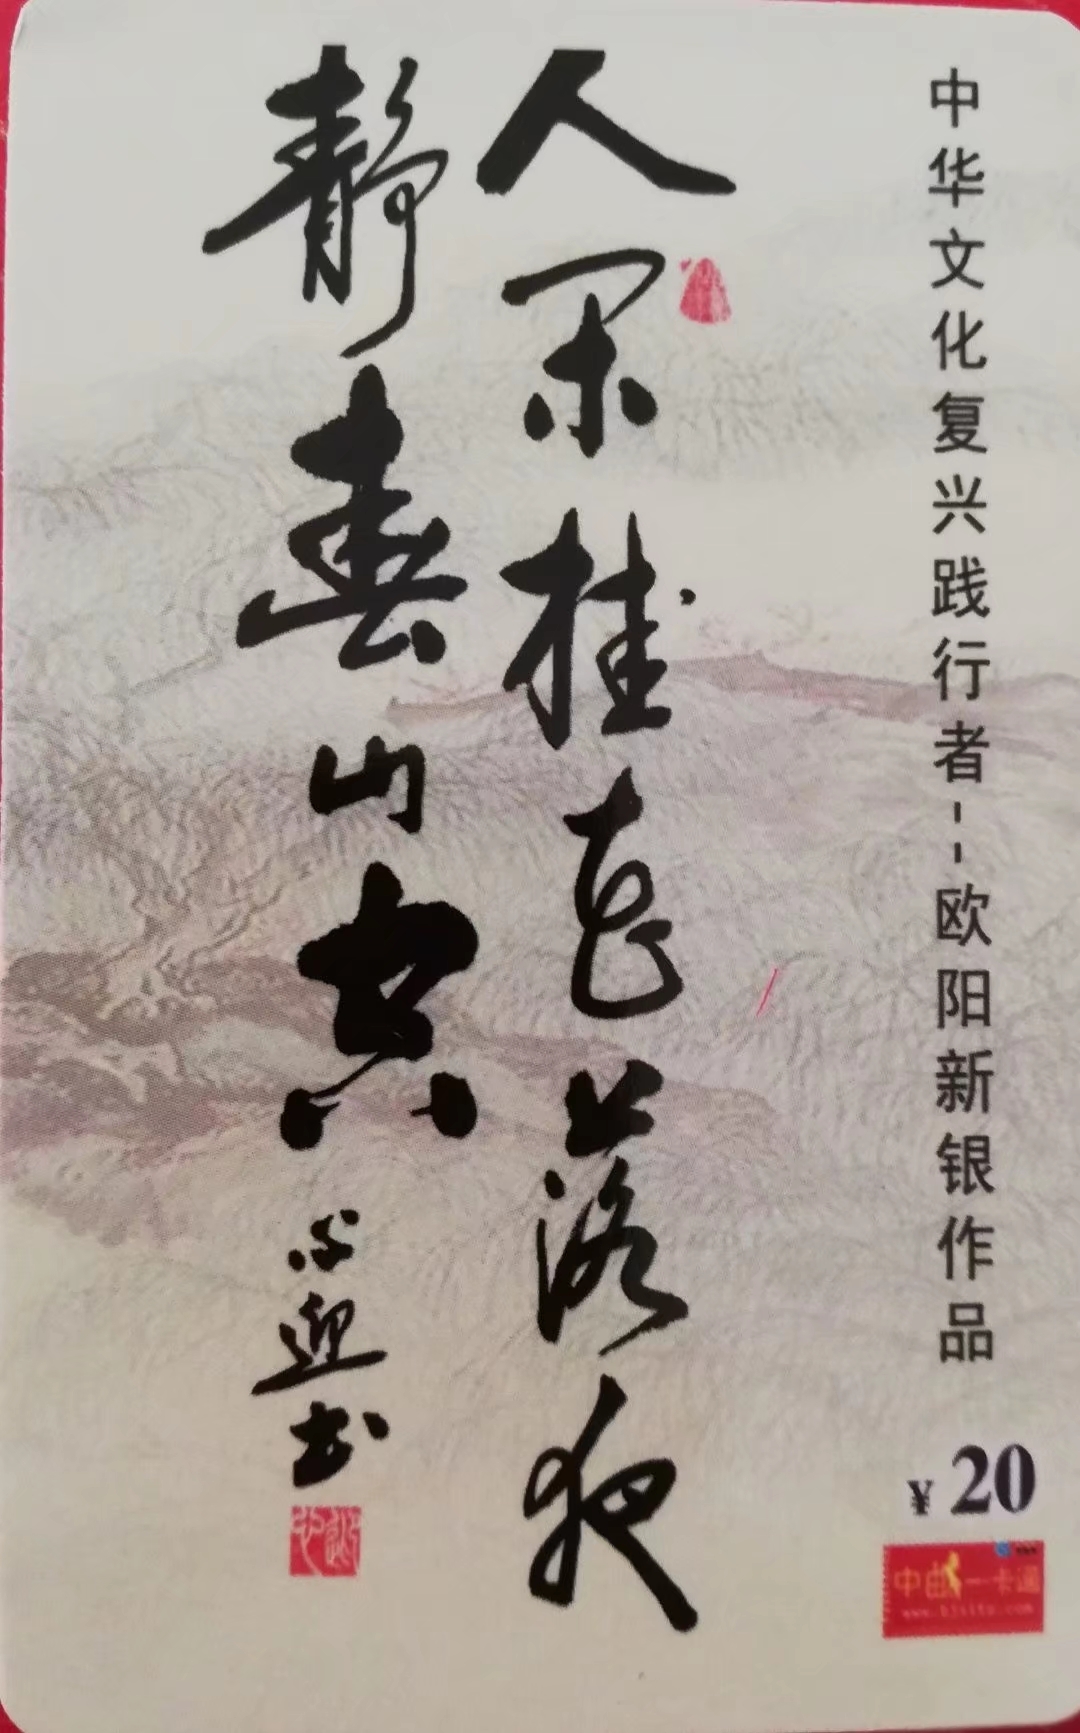 中华文化复兴践行者--欧阳新银作品
人闲桂花落夜
静春山空
心迎书
¥20
中 一卡通